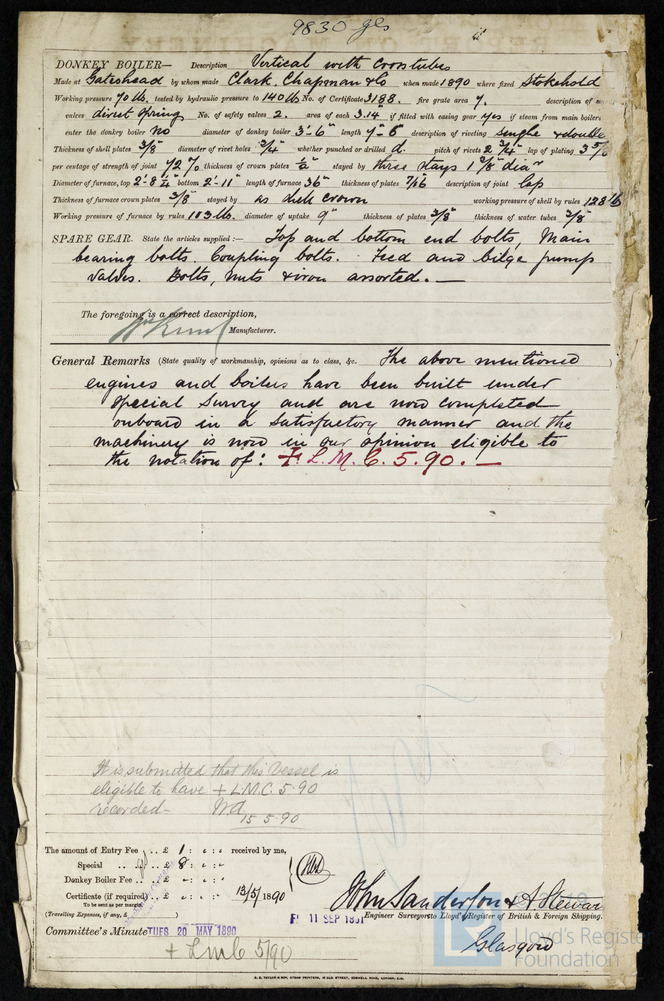 9830 gls
DONKEY BOILER— Description Vertical with Cross tubes
Made at Gateshead by whom made Clark, Chapman & Co when made 1890 where fixed Stokehold
Working pressure 70 lb. tested by hydraulic pressure to 140 lb No. of Certificate 3188. fire grate area 7. description of
valves direct spring No. of safety valves 2. area of each 3.14" if fitted with easing gear yes if steam from main boilers
enter the donkey boiler no diameter of donkey boiler 3'-6" length 7'-6" description of riveting single & double
Thickness of shell plates 3/8" diameter of rivet holes 3/4" whether punched or drilled d. pitch of rivets 2 3/4" lap of plating
per centage of strength of joint 72% thickness of crown plates 1/2" stayed by three stays 1 3/8" diar
Diameter of furnace, top 2'-8 3/4" bottom 2'-11" length of furnace 36" thickness of plates 7/16 description of joint Lap
Thickness of furnace crown plates 3/8" stayed by as shell crown working pressure of shell by rules 123 lb
Working pressure of furnace by rules 103 lbs. diameter of uptake 9" thickness of plates 3/8" thickness of water tubes 3/8"
SPARE GEAR. State the articles supplied:— Top and bottom end bolts, Main
bearing bolts. Coupling bolts. Feed and bilge pump
valves. Bolts, nuts & iron assorted.—
The foregoing is a correct description,
Manufacturer.
General Remarks (State quality of workmanship, opinions as to class, &c. The above mentioned
engines and boilers have been built under
special survey and are now completed
onboard in a satisfactory manner and the
machinery is now in our opinion eligible to
the notation of: + L.M.C. 5.90.—
It is submitted that this vessel is
eligible to have + L.M.C. 5.90
recorded—
15.5.90
The amount of Entry Fee .. £ 1 : : received by me,
Special .. £ 8 : :
Donkey Boiler Fee .. £ : :
Certificate (if required) .. £ : : 13/5/1890
To be sent as per margin
(Travelling Expenses, if any, £ )
John Sanderson & A Stewart
Engine Surveyors to Lloyd's Register of British & Foreign Shipping.
11 SEP 1891
Committee's Minute TUES 20 MAY 1890
Glasgow
+ Lmc 5/90
Lloyd's Register
Foundation